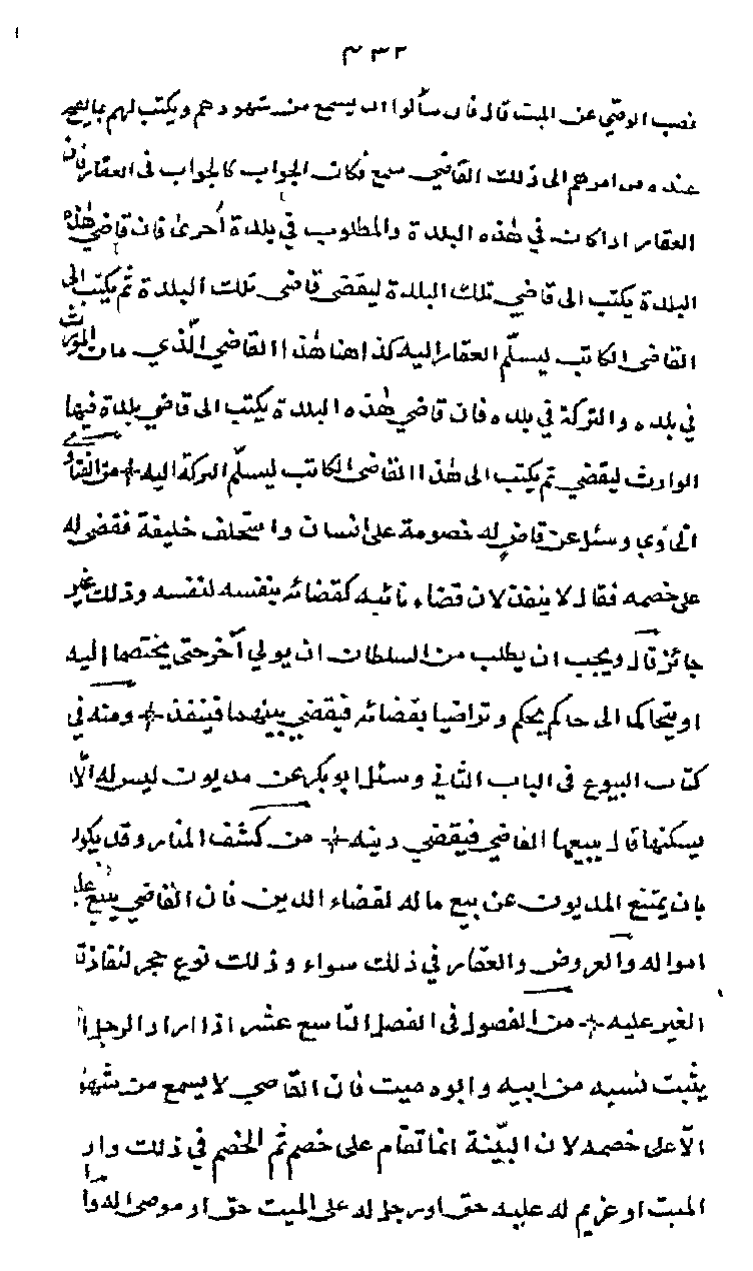 ٣٣٢
نصب الوصي عن الميت قال فان سألوا ان يسمع من شهودهم ويكتب لهم بما يصح
عنده من امرهم الى ذلك القاضي سمع فكان الجواب كالجواب في العقار فان
العقار اذا كان في هٰذه البلدة والمطلوب في بلدة أخرىٰ فان قاضي هٰذه
البلدة يكتب الى قاضي تلك البلدة ليقضي قاضي تلك البلدة ثم يكتب الى
القاضي الكاتب ليسلّم العقار اليه كذا هنا هٰذا القاضي الّذي مات المورث
في بلده والتركة في بلده فان قاضي هٰذه البلدة يكتب الى قاضي بلدة فيها
الوارث ليقضي ثم يكتب الى هٰذا القاضي الكاتب ليسلّم التركة اليه من الفتا
الحاوي وسئل عن قاضٍ له خصومة على انسان واستخلف خليفة فقضى له
على خصمه فقال لا ينفذ لان قضاء نائبه كقضائه بنفسه لنفسه وذلك غير
جائز قال ويجب ان يطلب من السلطان ان يولي آخر حتى يختصما اليه
او يتحاكما الى حاكم يحكم وتراضيا بقضائه فيقضي بينهما فينفذ ومنه في
كتاب البيوع في الباب الثاني وسئل ابو بكر عن مديون ليس له الّا
يسكنها قال يبيعها القاضي فيقضي دينه من كشف المنار وقد يكون
بان يمتنع المديون عن بيع ماله لقضاء الدين فان القاضي يبيع عليه
امواله والعروض والعقار في ذلك سواء وذلك نوع حجر لنفاذ
الغير عليه من الفصول في الفصل التاسع عشر اذا اراد الرجل ان
يثبت نسبه من ابيه وابوه ميت فان القاضي لا يسمع من شهود
الّا على خصمه لان البيّنة انما تقام على خصم ثم الخصم في ذلك وار
الميت او غريم له عليه حق او رجل له على الميت حق او موصى له